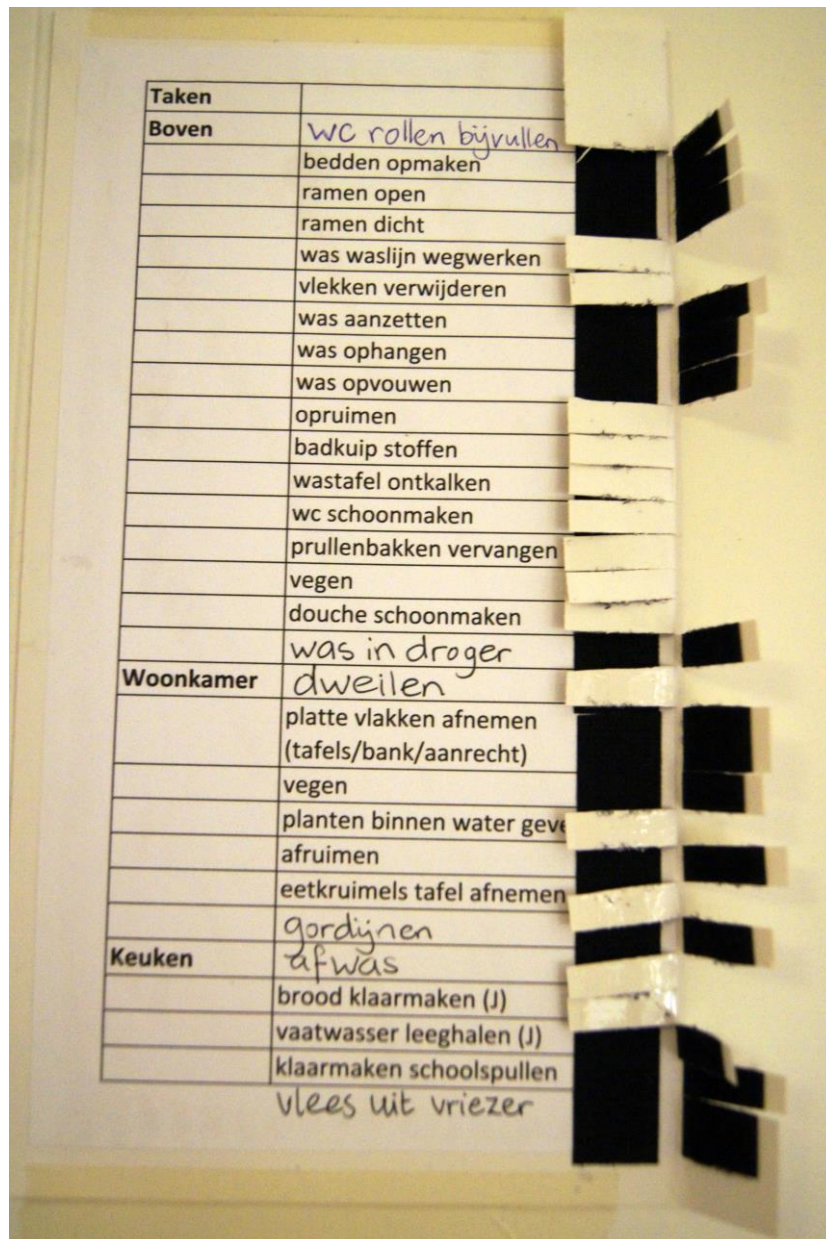 Taken
Boven wc rollen bijvullen
bedden opmaken
ramen open
ramen dicht
was waslijn wegwerken
vlekken verwijderen
was aanzetten
was ophangen
was opvouwen
opruimen
badkuip stoffen
wastafel ontkalken
wc schoonmaken
prullenbakken vervangen
vegen
douche schoonmaken
was in droger
Woonkamer dweilen
platte vlakken afnemen
(tafels/bank/aanrecht)
vegen
planten binnen water geve
afruimen
eetkruimels tafel afnemen
gordijnen
Keuken afwas
brood klaarmaken (J)
vaatwasser leeghalen (J)
klaarmaken schoolspullen
vlees uit vriezer